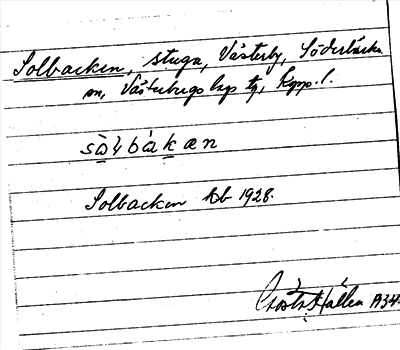 Solbacken, stuga, Västerby, Söderbärke
sn, Västerbergs lags tg, Kopp. l.
sòɫbàkæn
Solbacken kb 1928.
Gösta Hallen A34.